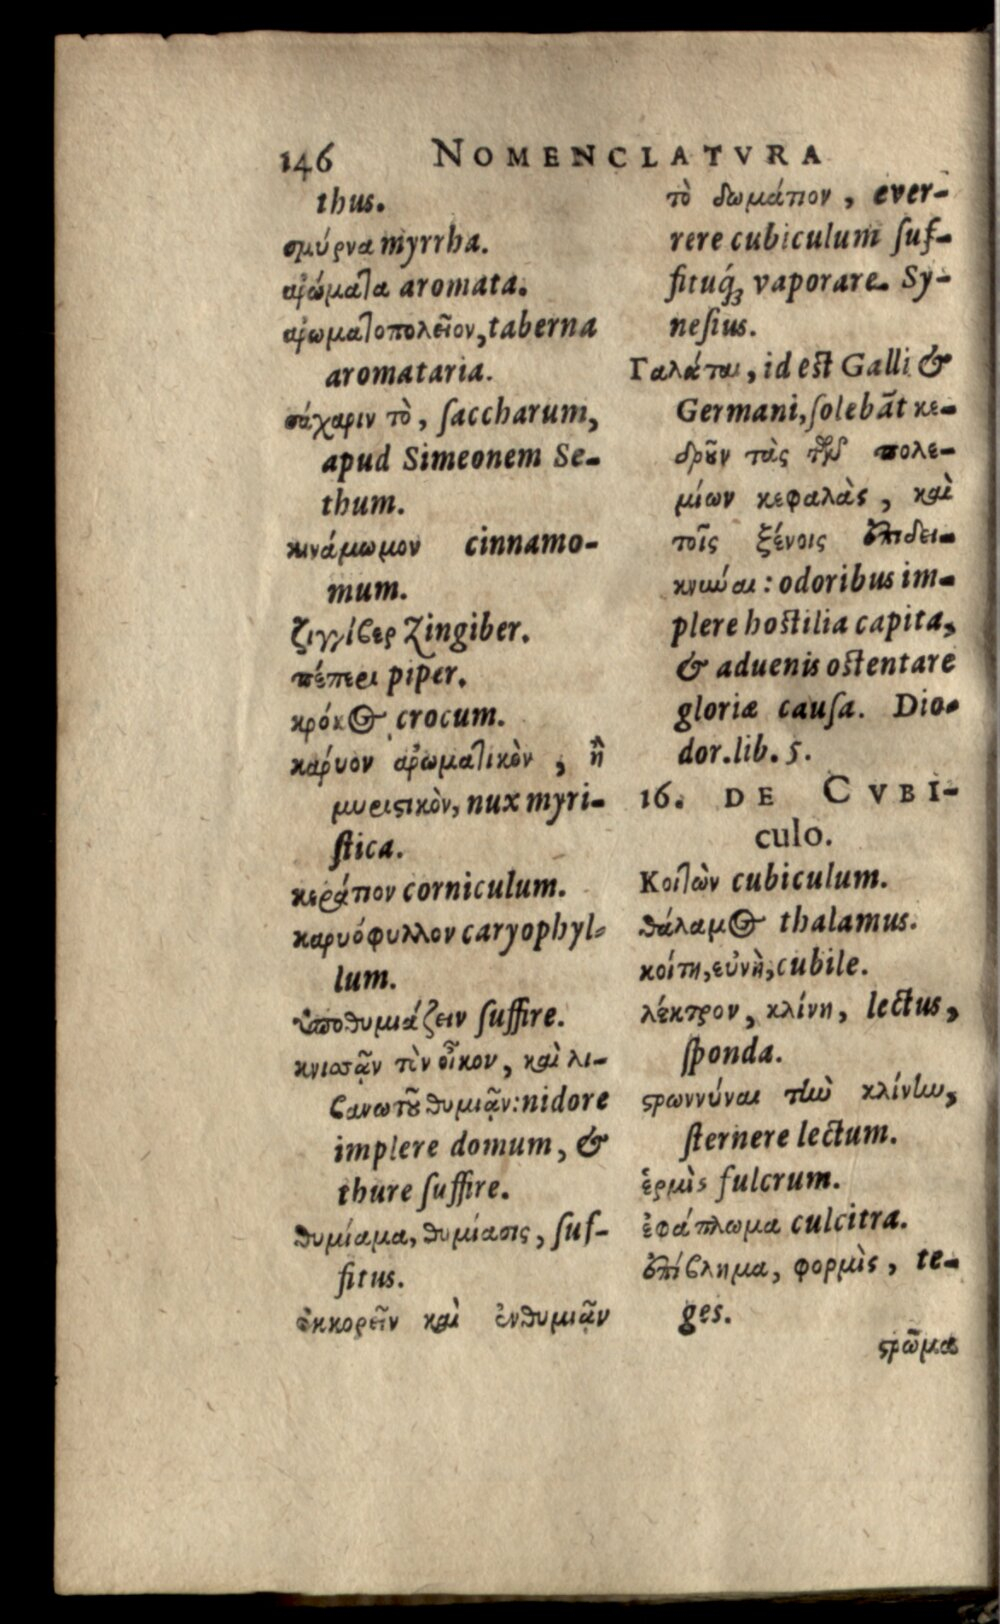 146 NOMENCLATVRA
thus.
σμύρνα myrrha.
ἀρώματα aromata.
ἀρωματοπολεῖον, taberna
aromataria.
σάχαριν τὸ, ſaccharum,
apud Simeonem Se-
thum.
κινάμωμον cinnamo-
mum.
ζιγγίβερ Zingiber.
πέπερι piper.
κρόκος crocum.
καρύον ἀρωματικὸν, ἢ
μυριστικὸν, nux myri-
ſtica.
κεράτιον corniculum.
καρυόφυλλον caryophyl-
lum.
ὑποθυμιάζειν ſuffire.
κνισσᾷν τὶν οἶκον, καὶ λι-
βανωτοῦ θυμιᾷν: nidore
implere domum, &
thure ſuffire.
θυμίαμα, θυμίασις, ſuf-
fitus.
ἐκκορεῖν καὶ ἐνθυμιᾷν
τὸ δωμάτιον, ever-
rere cubiculum ſuf-
fituq́; vaporare. Sy-
neſius.
Γαλάται, id eſt Galli &
Germani, ſolebāt κε-
δροῦν τὰς τῶν πολε-
μίων κεφαλὰς, καὶ
τοῖς ξένοις ἐπιδει-
κνύναι: odoribus im-
plere hoſtilia capita,
& aduenis oſtentare
gloriæ cauſa. Dio-
dor. lib. 5.
16. DE CVBI-
culo.
Κοιτὼν cubiculum.
θάλαμος thalamus.
κοίτη, εὐνὴ, cubile.
λέκτρον, κλίνη, lectus,
ſponda.
στρωννύναι τὴν κλίνην,
ſternere lectum.
ἑρμὶς fulcrum.
ἐφάπλωμα culcitra.
ἐπίβλημα, φορμὶς, te-
ges.
στρῶμα